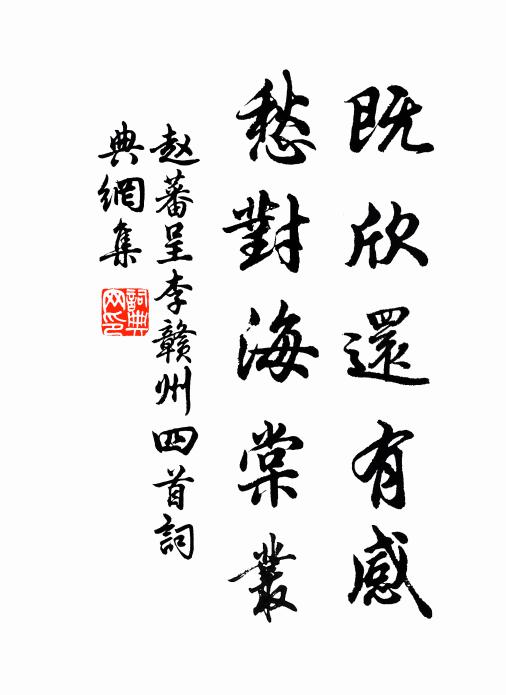 既欣還有感
愁對海棠叢
赵蕃呈李赣州四首詞
典網集
詞典
网印